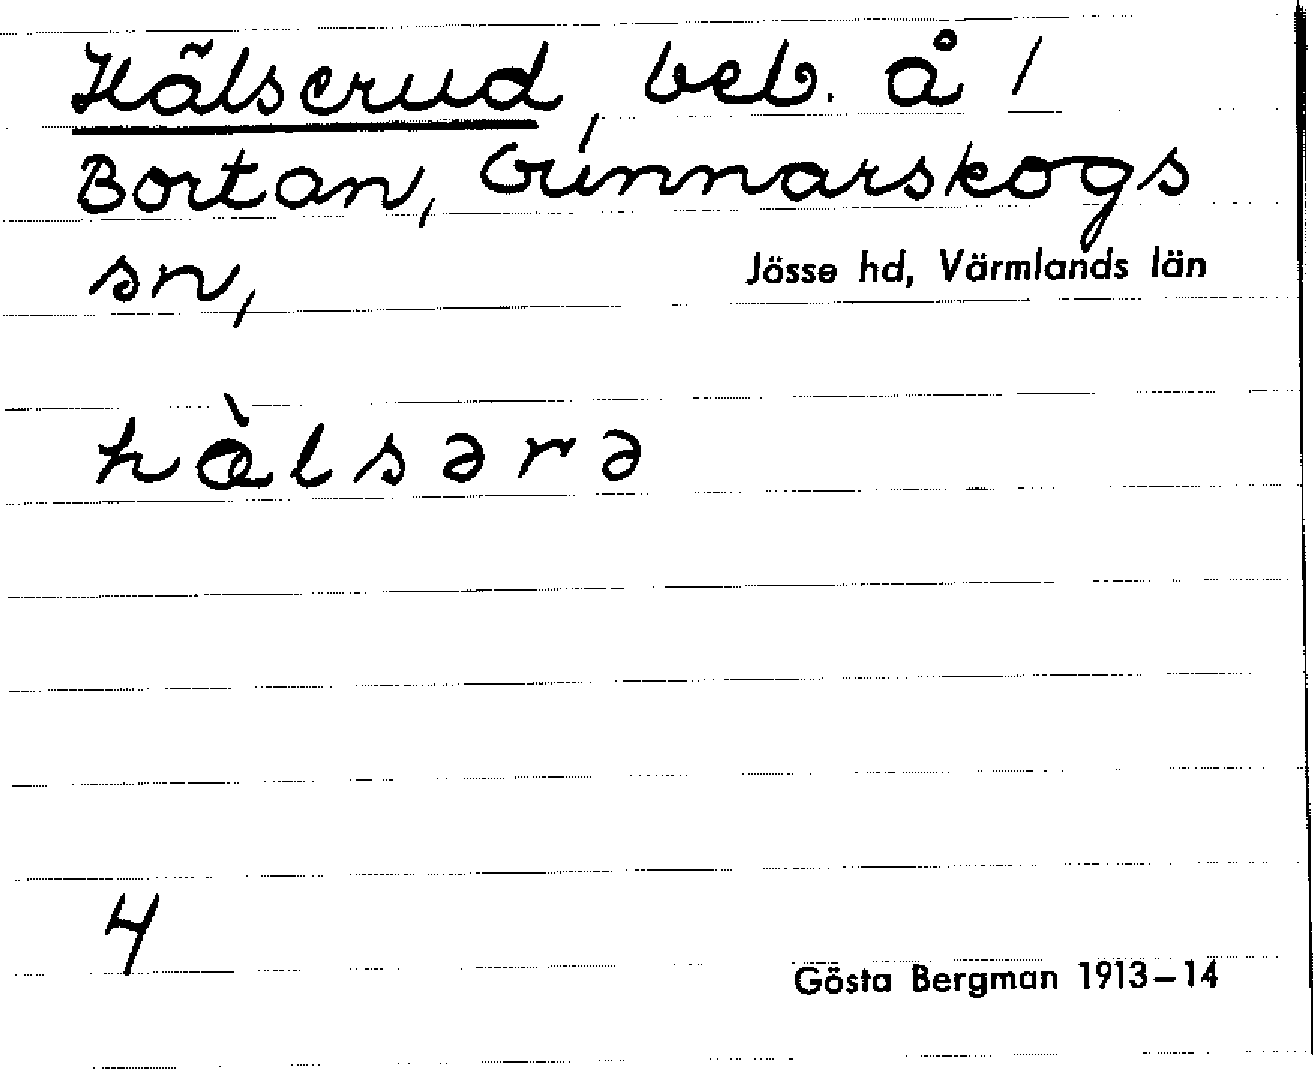 Hälserud, beb. å /
Bortan, Gunnarskogs
sn,
Jösse hd, Värmlands län
hæ̀lsərə
4
Gösta Bergman 1913–14